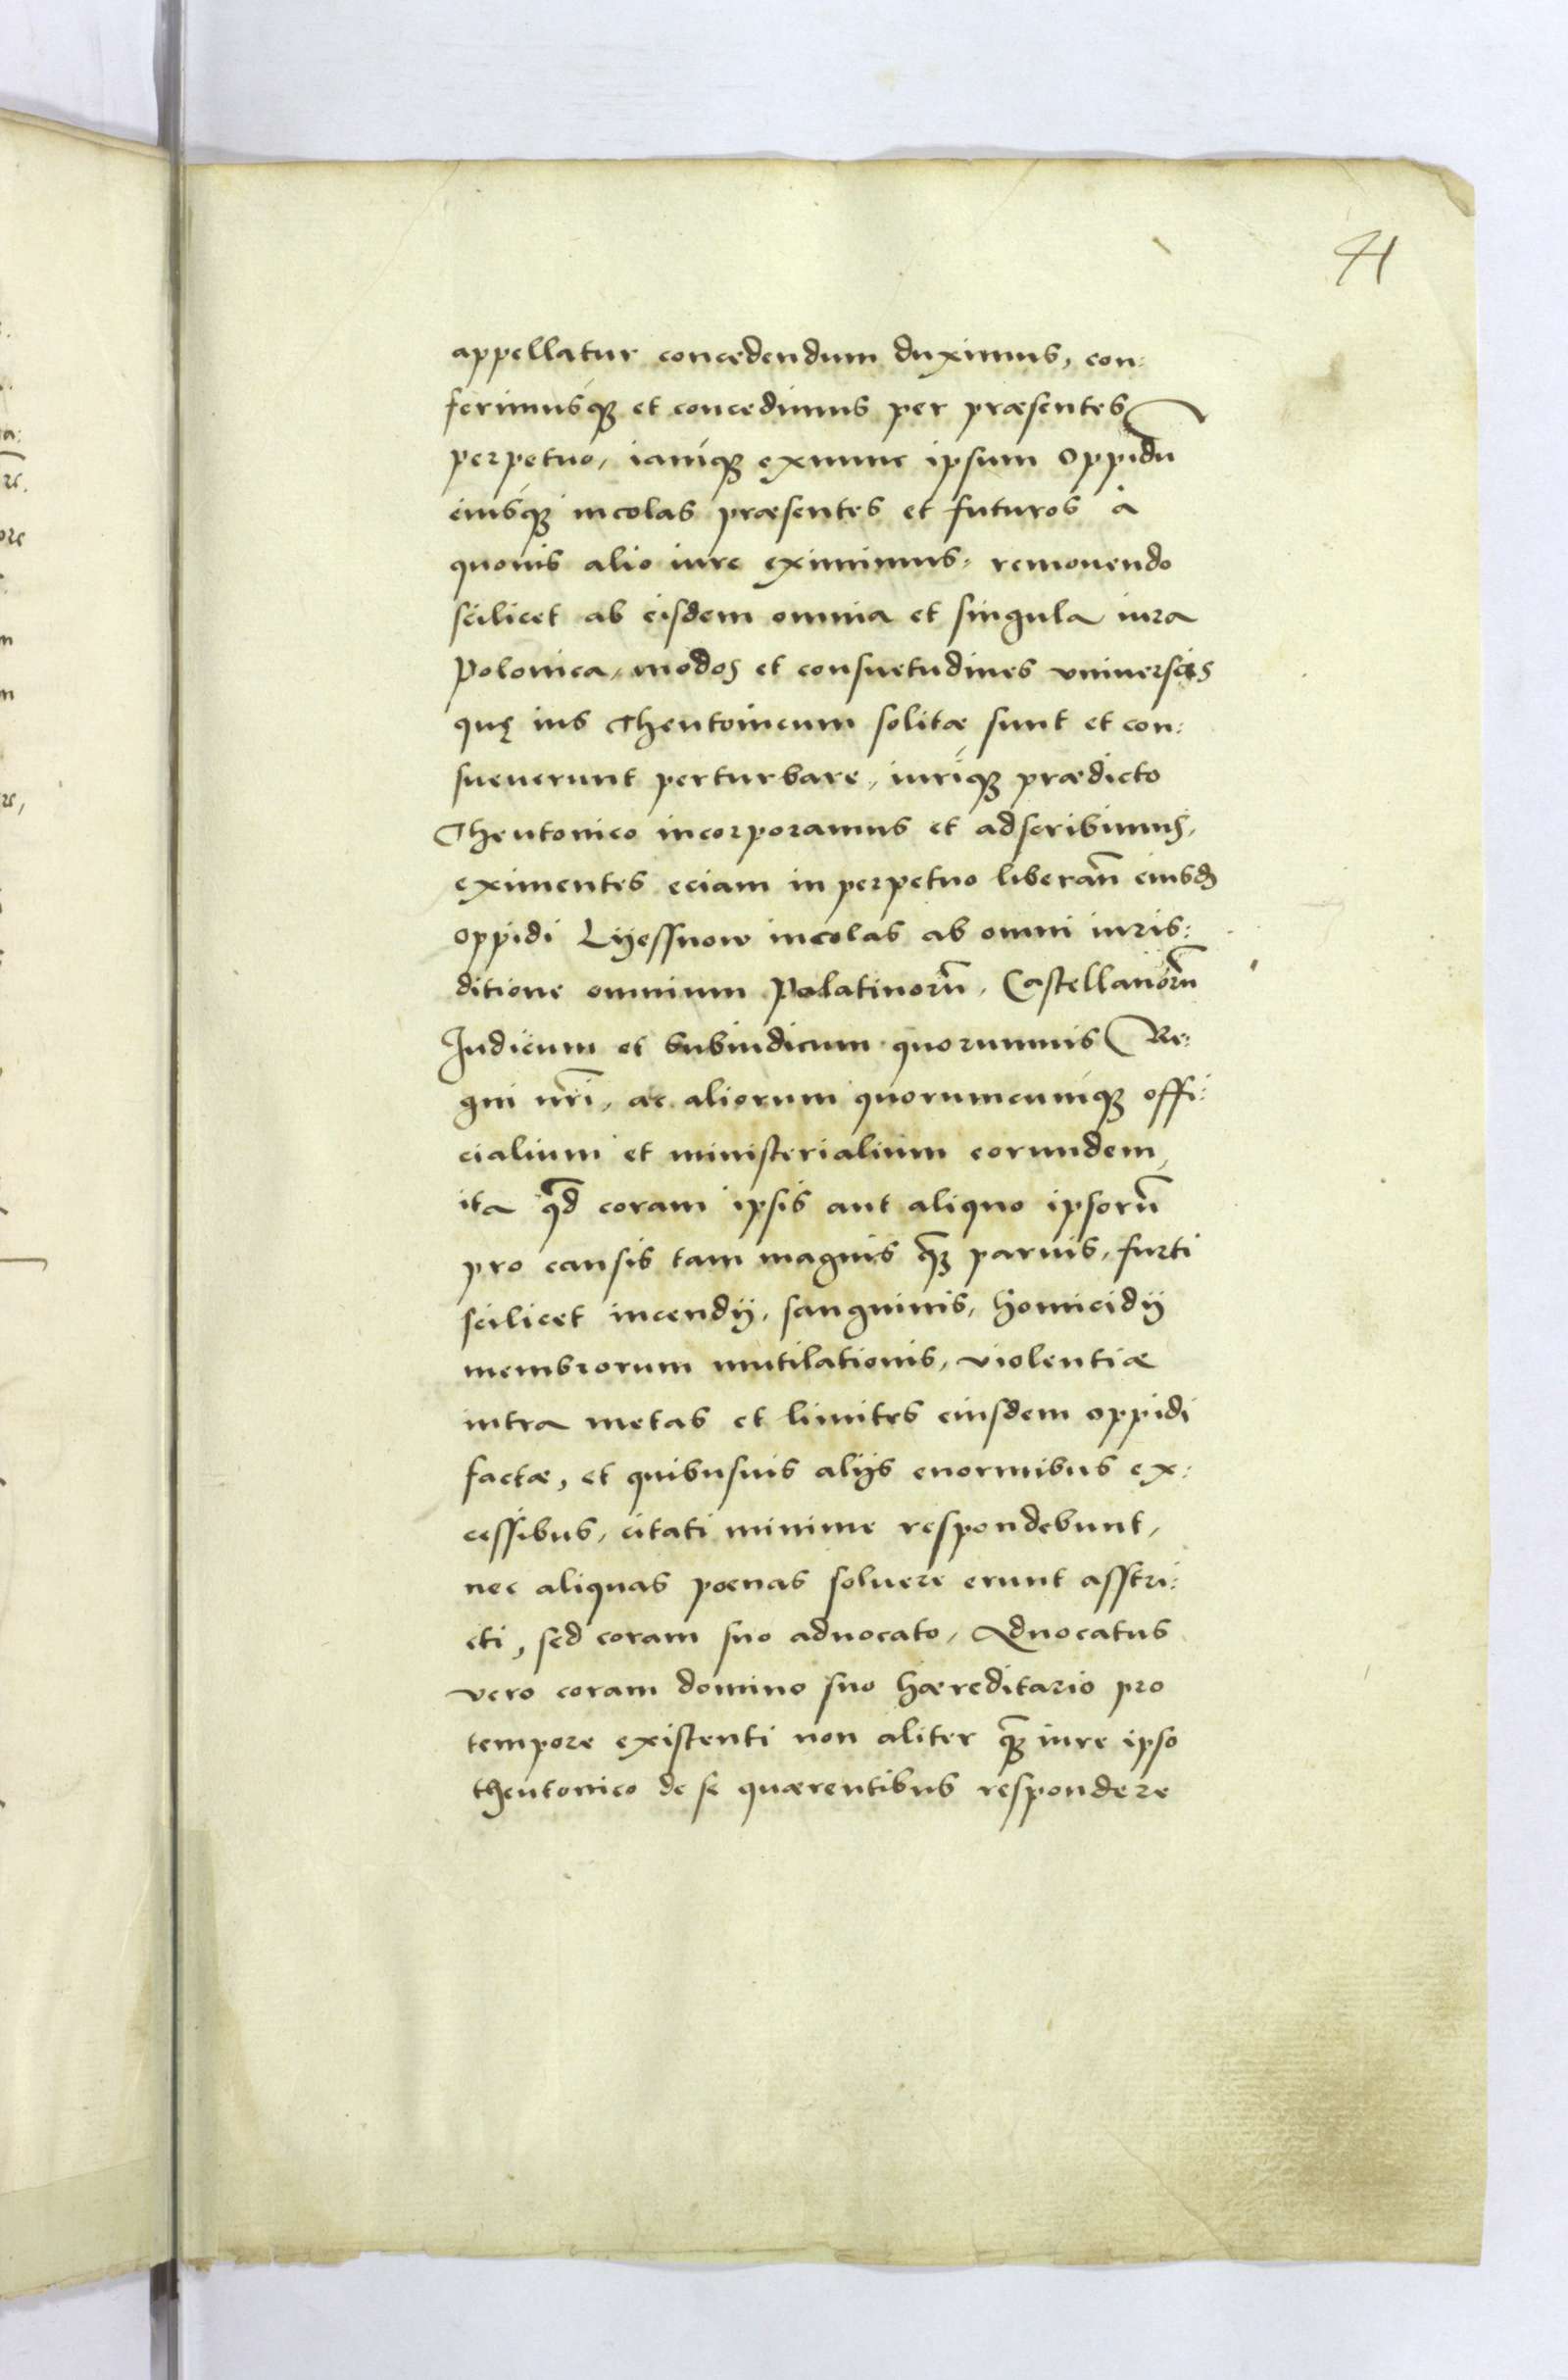 41
appellatur concedendum duximus, con:
ferimusq₃ et concedimus per præsentes
perpetuo, iamq₃ exnunc ipsum oppidū
eiusq₃ incolas præsentes et futuros à
quouis alio iure eximimus, remouendo
scilicet ab eisdem omnia et singula iura
Polonica, modos et consuetudines vniuersas
quę ius Theutonicum solitæ sunt et con:
sueuerunt perturbare, iuriq₃ prædicto
Theutonico incorporamus et adscribimus,
eximentes eciam in perpetuo liberan̄ eiusdȝ
oppidi Lyessnow incolas ab omni iuris:
ditione omnium Palatinorū, Castellanorū
Iudicum et Subiudicum quorumuis Re:
gni nr̄i, ac aliorum quorumcumq₃ offi:
cialium et ministerialium eorundem,
ita qđ coram ipsis aut aliquo ipsorū
pro causis tam magnis q̄ȝ paruis, furti
scilicet incendij, sanguinis, homicidij
membrorum mutilationis, violentiæ
intra metas et limites eiusdem oppidi
factæ, et quibusuis alijs enormibus ex:
cessibus, citati minime respondebunt,
nec aliquas poenas soluere erunt asstri:
cti, sed coram suo aduocato, Aduocatus
vero coram domino suo hæreditario pro
tempore existenti non aliter q̄ȝ iure ipso
theutonico de se quærentibus respondere